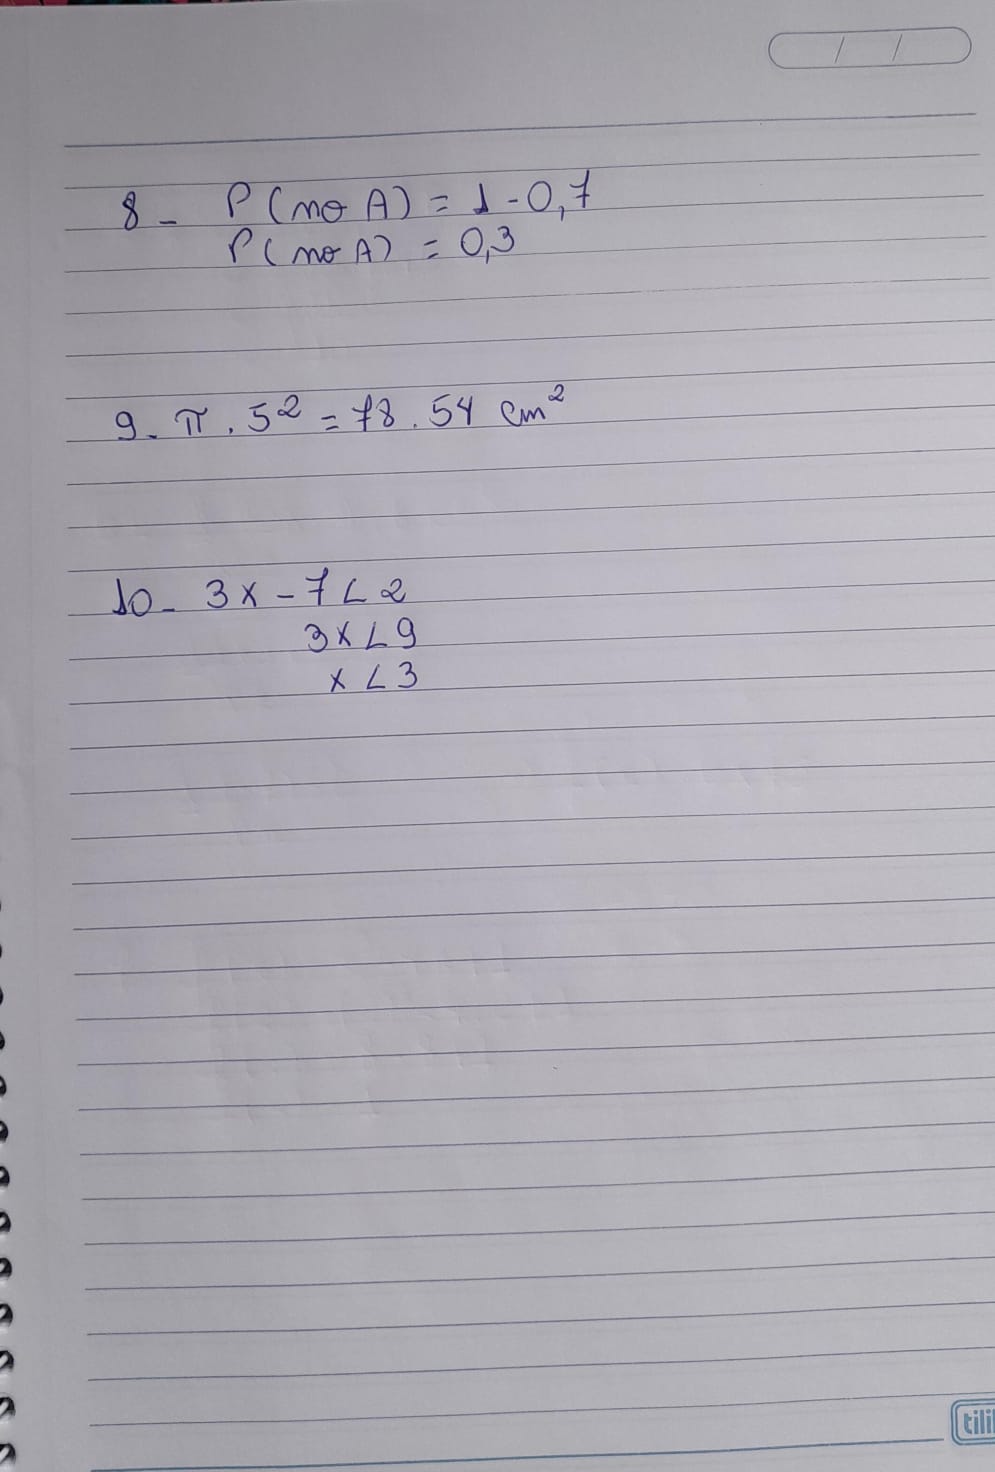 / /
8- P(no A) = 1-0,7
P(no A) = 0,3
9. π . 5² = 78.54 cm²
10- 3x-7<2
3x<9
x<3